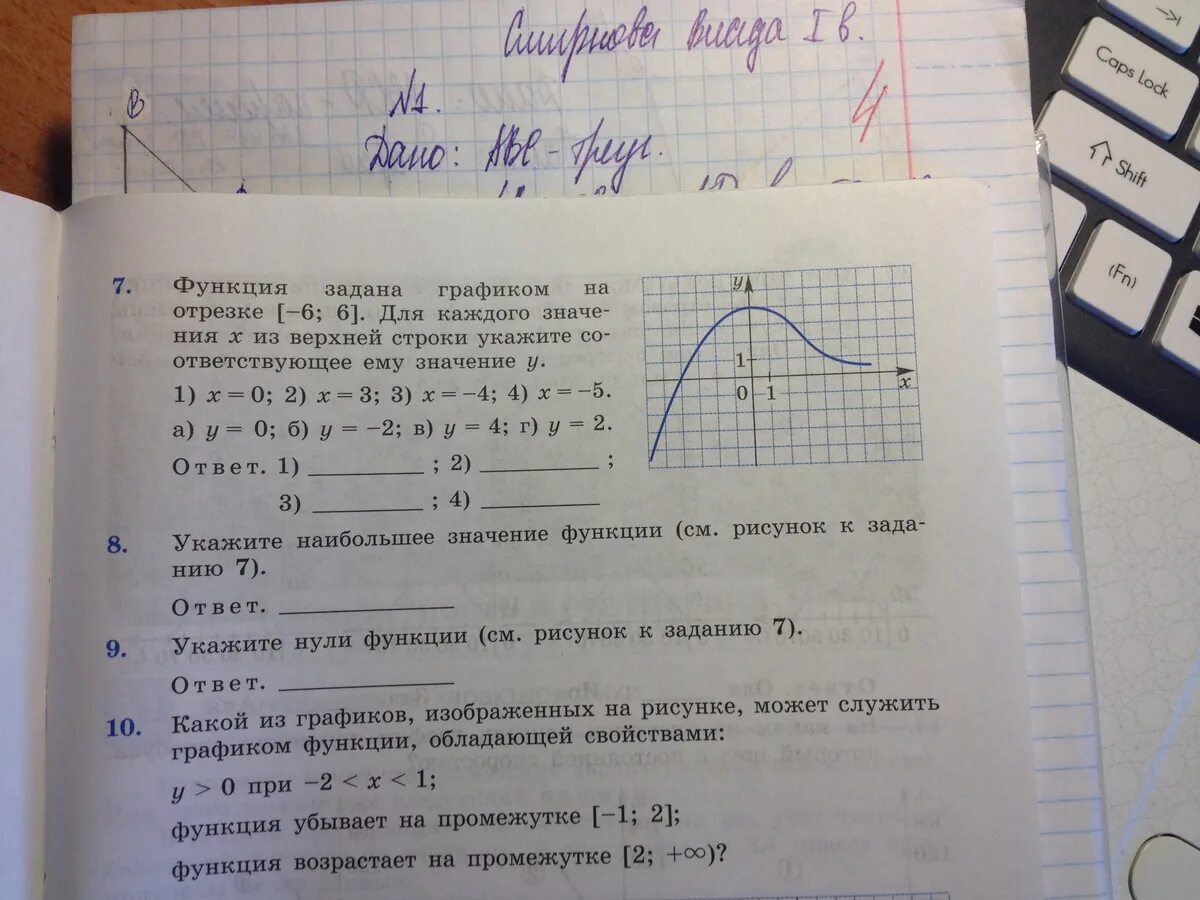 Смирнова Влада I в.
4
N1.
Дано: ABC - треуг.
B
Caps Lock
Shift
(Fn)
7. Функция задана графиком на
отрезке [−6; 6]. Для каждого значе-
ния x из верхней строки укажите со-
ответствующее ему значение y.
1) x = 0; 2) x = 3; 3) x = −4; 4) x = −5.
а) y = 0; б) y = −2; в) y = 4; г) y = 2.
Ответ. 1) ________ ; 2) ________ ;
3) ________ ; 4) ________
y
1
0 1
x
8. Укажите наибольшее значение функции (см. рисунок к зада-
нию 7).
Ответ. ____________
9. Укажите нули функции (см. рисунок к заданию 7).
Ответ. ____________
10. Какой из графиков, изображенных на рисунке, может служить
графиком функции, обладающей свойствами:
y > 0 при −2 < x < 1;
функция убывает на промежутке [−1; 2];
функция возрастает на промежутке [2; +∞)?